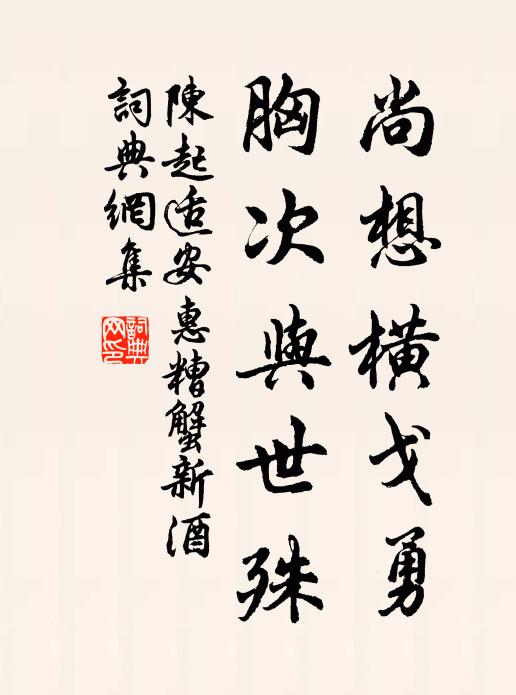 尚想橫戈勇
胸次與世殊
陳起适安惠糟蟹新酒
詞典網集
詞典网印